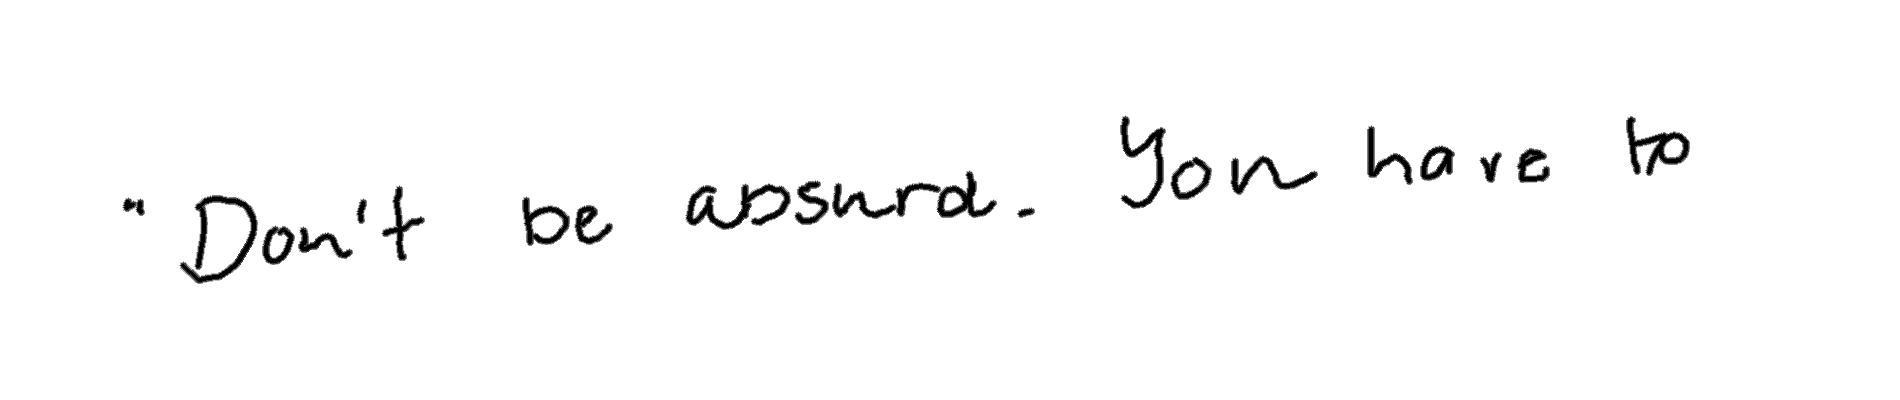 "Don't be absurd. You have to